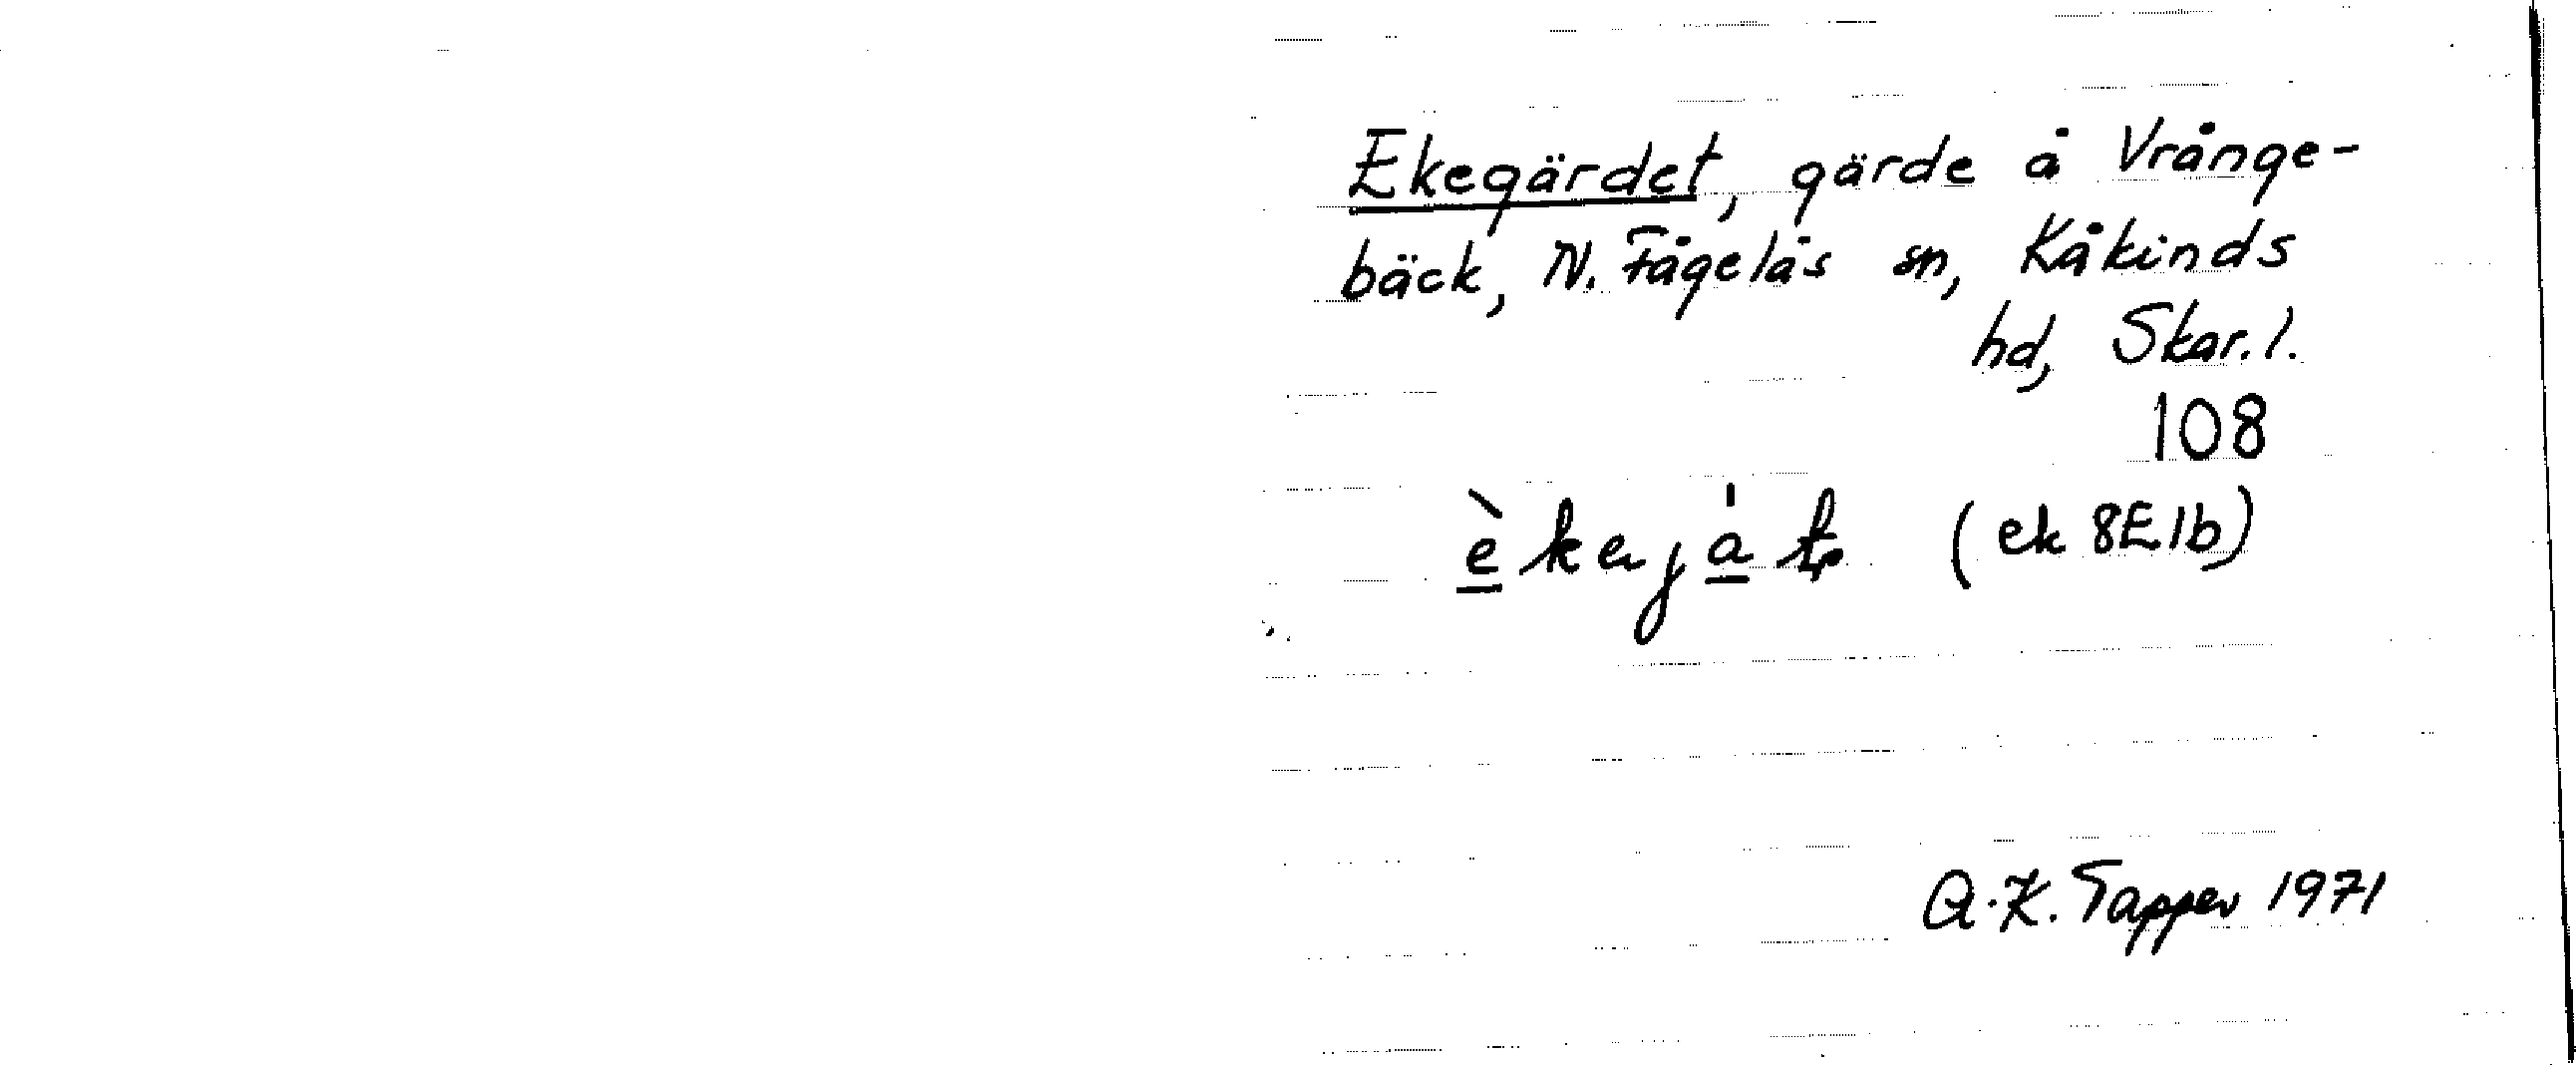 Ekegärdet, gärde å Vrånge-
bäck, N. Fågelås sn, Kåkinds
hd, Skar. l.
108
(ek 8E1b)
A.K. Tapper 1971